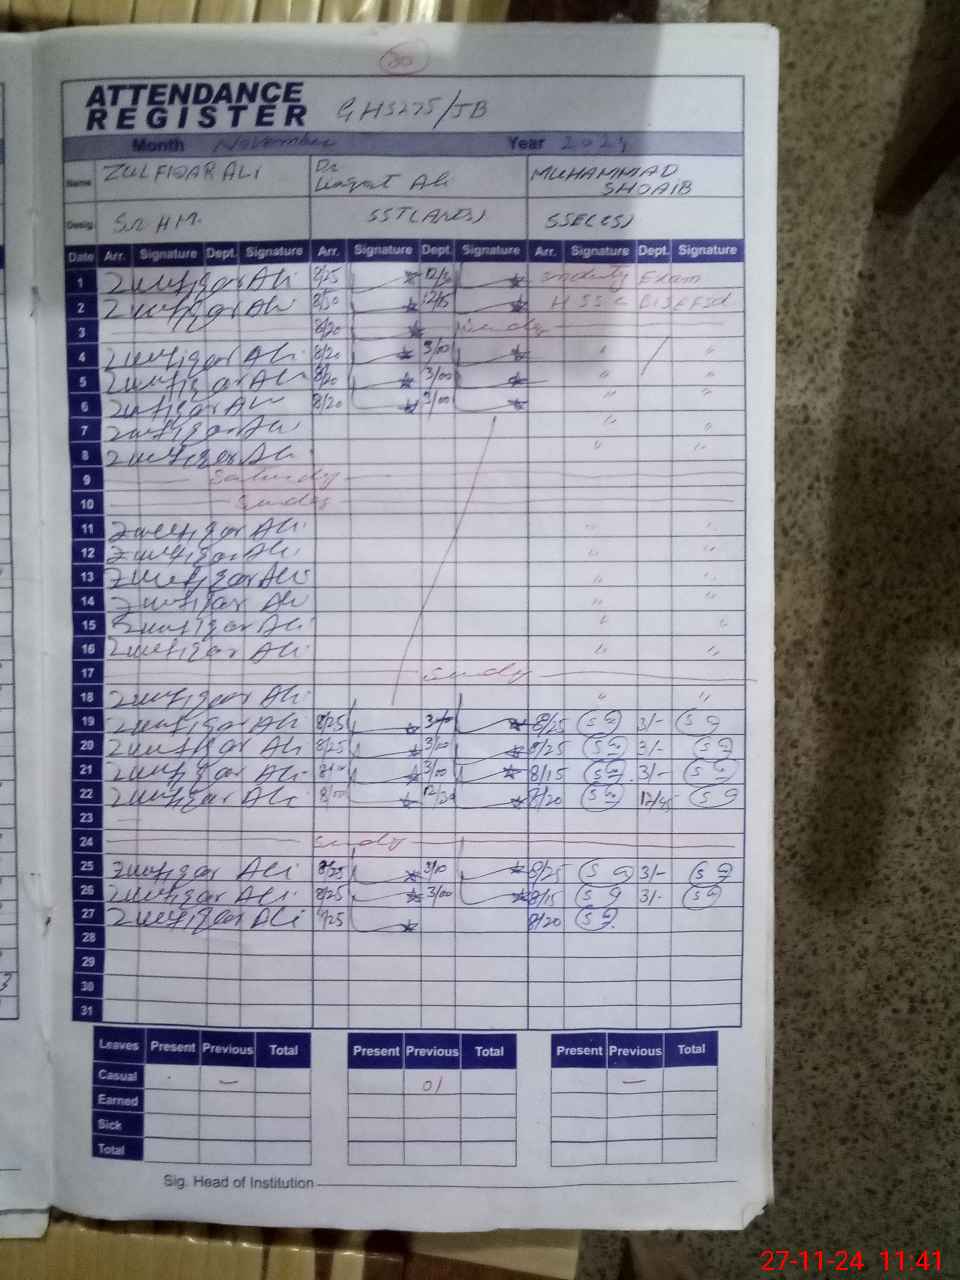 30
ATTENDANCE
REGISTER GHS275/JB
Month November Year 2024
Name ZULFIQAR ALI Dr Liaqat Ali MUHAMMAD SHOAIB
Desig. Sr. HM. SST(ARTS) SSE(CS)
Date Arr. Signature Dept. Signature Arr. Signature Dept. Signature Arr. Signature Dept. Signature
1 Zulfiqar Ali 8/25 on duty Exam
2 Zulfiqar Ali 8/30 12/15 H SSC BISE FSD
3 8/20 Sunday
4 Zulfiqar Ali 8/20 3/00 " "
5 Zulfiqar Ali 8/20 3/00 " "
6 Zulfiqar Ali 8/20 3/00 " "
7 Zulfiqar Ali " "
8 Zulfiqar Ali " "
9 Saturday
10 Sunday
11 Zulfiqar Ali " "
12 Zulfiqar Ali " "
13 Zulfiqar Ali " "
14 Zulfiqar Ali " "
15 Zulfiqar Ali " "
16 Zulfiqar Ali " "
17 Sunday
18 Zulfiqar Ali " "
19 Zulfiqar Ali 8/25 3/00 8/25 3/-
20 Zulfiqar Ali 8/25 3/00 8/25 3/-
21 Zulfiqar Ali 3/00 8/15 3/-
22 Zulfiqar Ali 8/00 12/20 8/20 12/45
23
24 Sunday
25 Zulfiqar Ali 8/25 3/10 8/25 3/-
26 Zulfiqar Ali 8/25 3/00 8/15 3/-
27 Zulfiqar Ali 8/20
28
29
30
31
Leaves Present Previous Total Present Previous Total Present Previous Total
Casual - 01 -
Earned
Sick
Total
Sig. Head of Institution
27-11-24 11:41